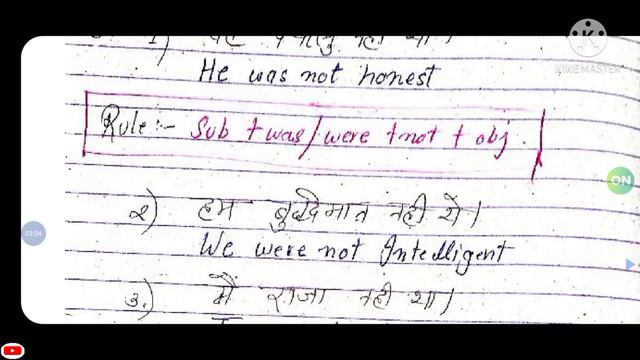 KINEMASTER
He was not honest
Rule :- Sub + was/were + not + obj.
ON
२) हम बुद्दिमान नही थे।
03:04
We were not Intelligent
३.) मैं राजा नही था।